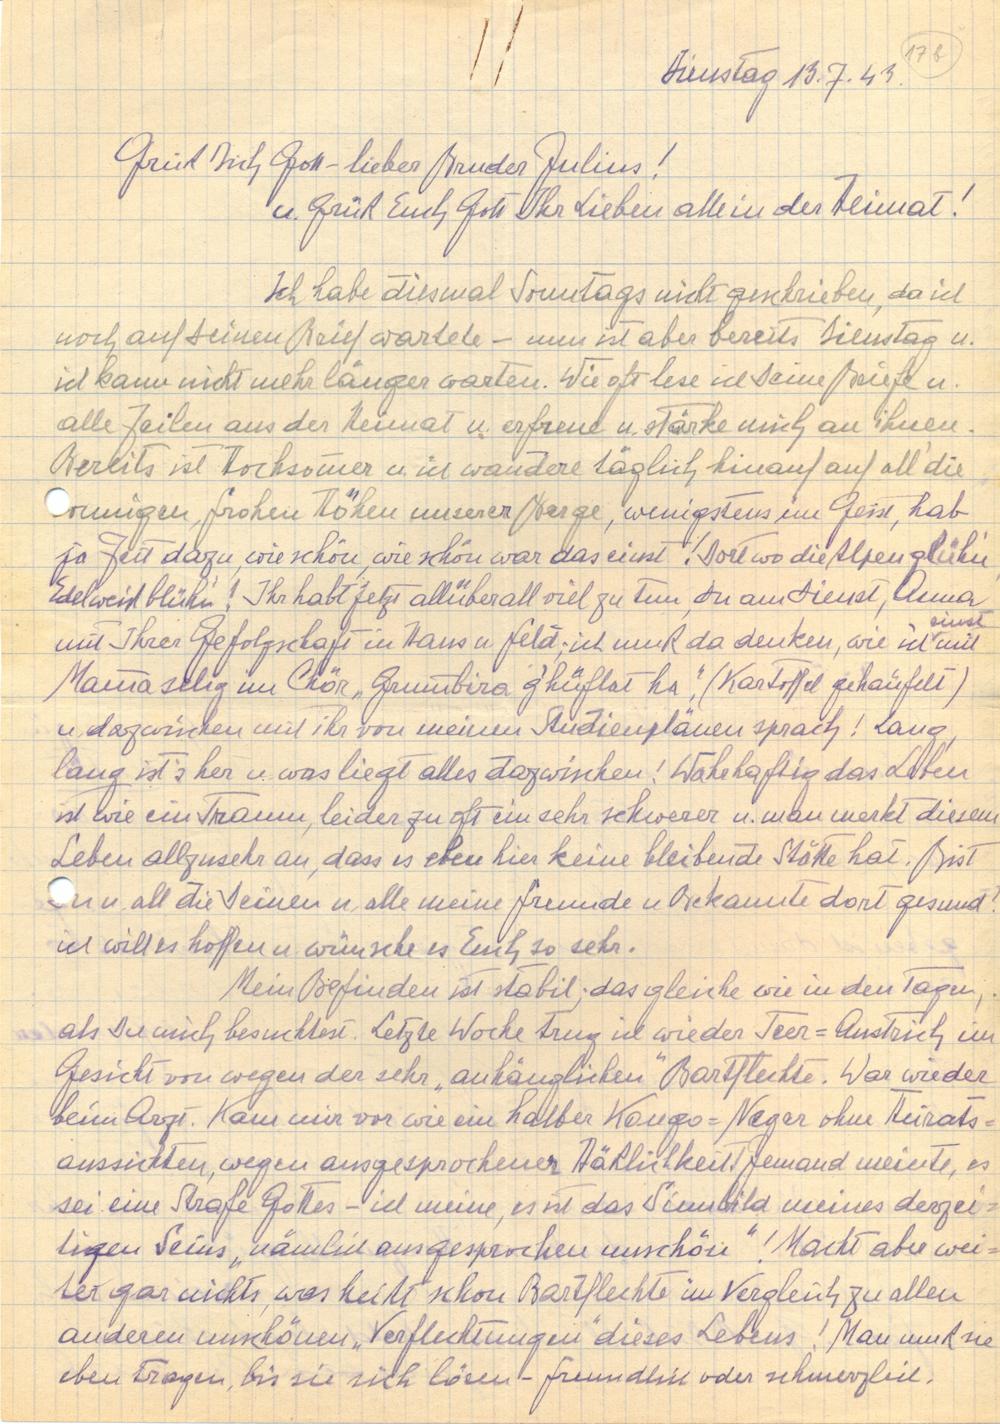 17 b
Dienstag 13.7.43.
Grüß Dich Gott – lieber Bruder Julius!
u. Grüß Euch Gott Ihr Lieben alle in der Heimat!
Ich habe diesmal Sonntags nicht geschrieben, da ich
noch auf Deinen Brief wartete – nun ist aber bereits Dienstag u.
ich kann nicht mehr länger warten. Wie oft lese ich Deine Briefe u.
alle Zeilen aus der Heimat u. erfreue u. stärke mich an ihnen.
Bereits ist Hochsomer u. ich wandere täglich hinauf auf all die
onnigen, frohen Höhen unserer Berge, wenigstens im Geist, hab
ja Zeit dazu, wie schön, wie schön war das einst! Dort wo die Alpen glühn,
Edelweiß blühn! Ihr habt jetzt allüberall viel zu tun, Du am Dienst, Anna
mit Ihrer Gefolgschaft in Haus u. Feld; ich muß da denken, wie ich einst mit
Mama selig im Chör „Grumbira g'hüflat ha", (Kartoffel gehäufelt)
u. dazwischen mit ihr von meinen Studienplänen sprach! Lang,
lang ist's her u. was liegt alles dazwischen! Wahrhaftig das Leben
ist wie ein Traum, leider zu oft ein sehr schwerer u. man merkt diesem
Leben allzusehr an, dass es eben hier keine bleibende Stätte hat. Bist
Du u. all die Deinen u. alle meine Freunde u Bekannte dort gesund!
ich will es hoffen u. wünsche es Euch so sehr.
Mein Befinden ist stabil; das gleiche wie in den Tagen,
als Du mich besuchtest. Letzte Woche trug ich wieder Teer=Anstrich im
Gesicht von wegen der sehr „anhänglichen" Bartflechte. War wieder
beim Arzt. Kam mir vor wie ein halber Kongo=Neger ohne Heirats=
aussichten, wegen ausgesprochener Häßlichkeit! Jemand meinte, es
sei eine Strafe Gottes – ich meine, es ist das Sinnbild meines derzei=
tigen Seins „nämlich ausgesprochen unschön"! Macht aber wei=
ter gar nichts, was heißt schon Bartflechte im Vergleich zu allen
anderen unschönen „Verflechtungen" dieses Lebens! Man muß sie
eben tragen, bis sie sich lösen – freundlich oder schmerzlich.